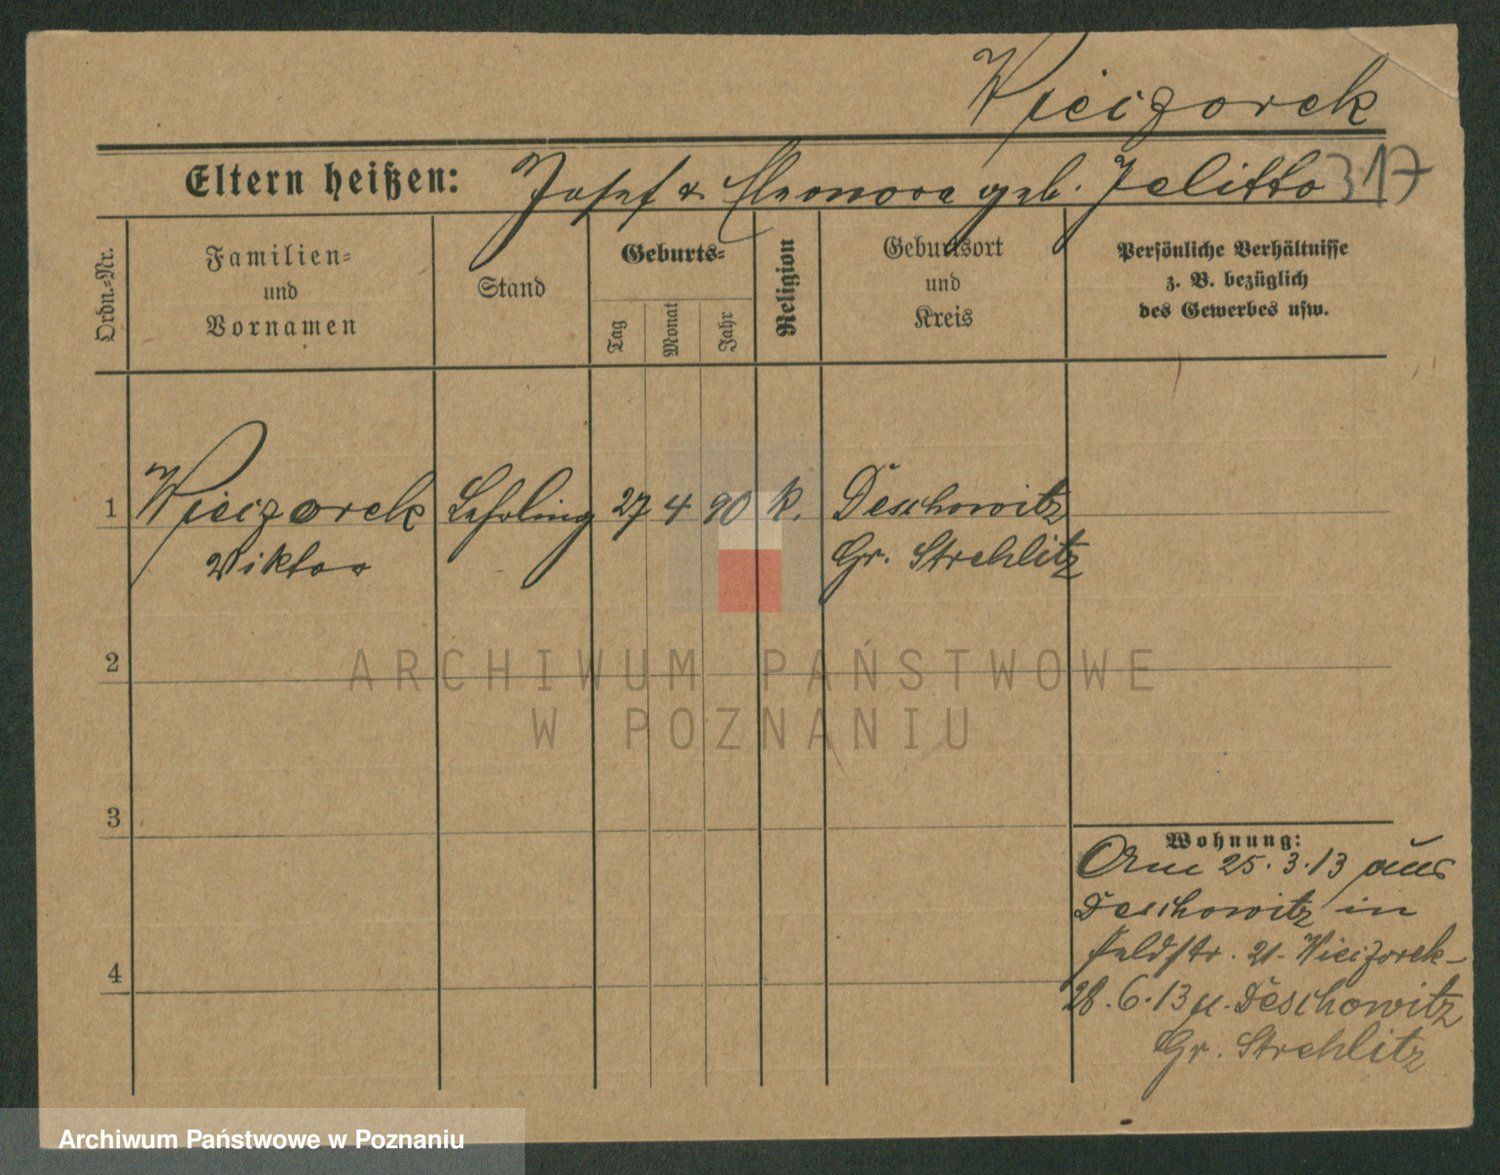 Wieczorek
Eltern heißen: Josef & Eleonore geb. Jelitto 317
Ordn.=Nr.
Familien=
und
Vornamen
Stand
Geburts=
Tag
Monat
Jahr
Religion
Geburtsort
und
Kreis
Persönliche Verhältnisse
z. B. bezüglich
des Gewerbes usw.
1 Wieczorek Lehrling 27 4 90 k. Deschowitz
Viktor Gr. Strehlitz
2
3
4
Wohnung:
Am 25.3.13 aus
Deschowitz in
Feldstr. 21- Wieczorek-
28.6.13 n. Deschowitz
Gr. Strehlitz
ARCHIWUM PAŃSTWOWE
W POZNANIU
Archiwum Państwowe w Poznaniu